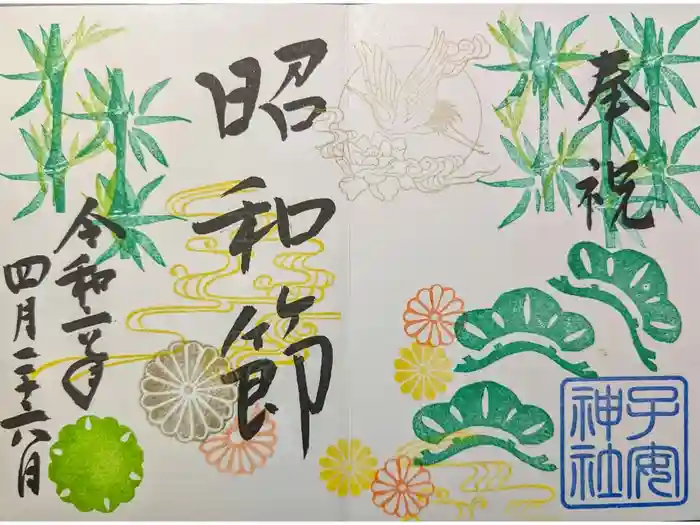 奉祝
子安
神社
昭和節
令和六年
四月二十六日